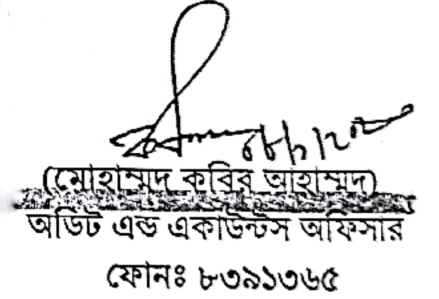 (মোহাম্মদ কবির আহাম্মদ)
অডিট এন্ড একাউন্টস অফিসার
ফোনঃ ৮৩৯১৩৬৫